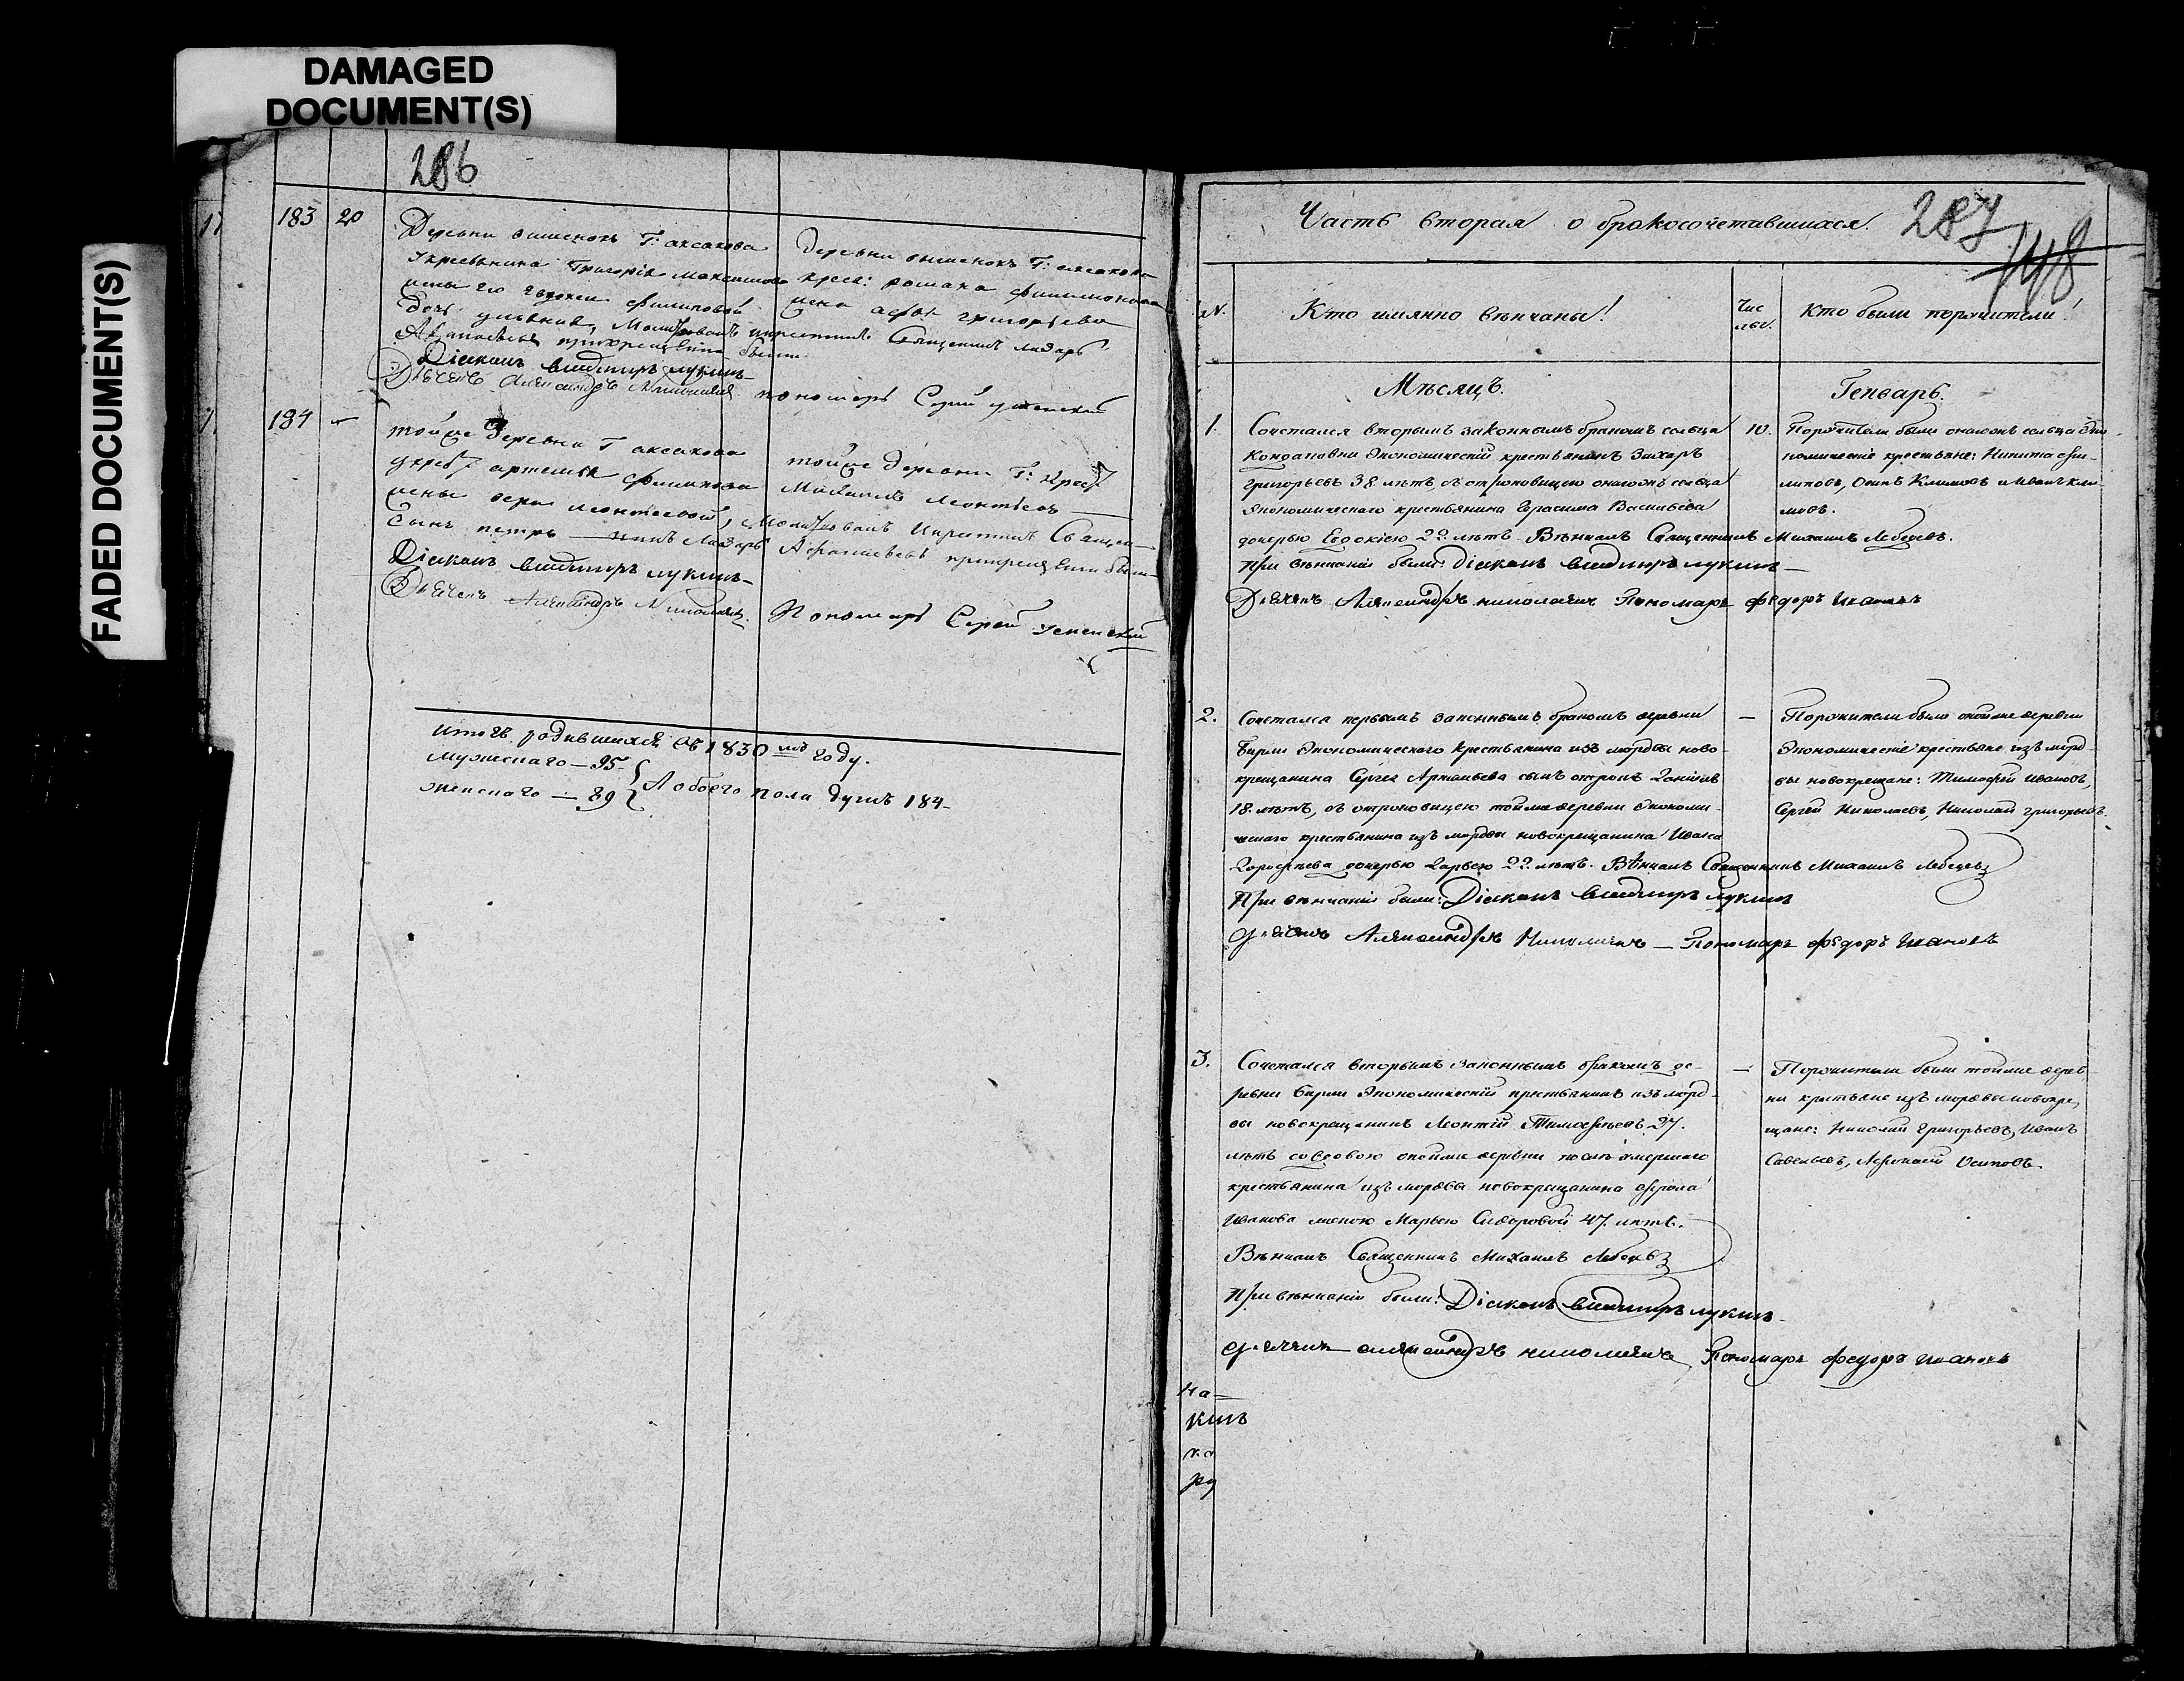 DAMAGED
DOCUMENT(S)
FADED DOCUMENT(S)
286
183 20
Деревни вишенокъ Г: аксакова
Укрестьянина Григорія Максимова
жены его евдокеи филиповой
дочь ульяния, Молитвовалъ икрестилъ Священникъ лазарь
Афанасьевъ прикрещеніи были
Діаконъ владимиръ лукинъ
Дьячекъ Александръ Николаевъ
деревни вишенокъ Г: аксакова
крест: романа филимонова
жена
григорьева
пономарь Сергей успенский
184 —
тойже деревни Г аксакова
укрест: артемья филипова
жены веры леонтьевой, Молитвовалъ Икрестилъ Священ—
сынъ петръ —никъ Лазарь Афанасьевъ прикрещеніи были
Діаконъ владимиръ лукинъ
Дьячекъ Александръ Николаевъ
тойже деревни Г: Крест:
Михаилъ Леонтьевъ
Пономарь Сергей Успенский
итогъ родившихся въ 1830 мъ году.
мужескаго — 95
женскаго — 89
А обоего пола душъ 184
Часть вторая о бракосочетавшихся. 287
148
№.
Кто имянно вѣнчаны!
Чис
лы.
Кто были поручители!
Мѣсяцъ.
Генварь.
1.
Сочетался вторымъ законнымъ бракомъ сельца
экономическій крестьянинъ Захаръ
григорьевъ 38. лѣтъ, съ отроковицею онагожъ сельца
экономическаго крестьянина Герасима Васильева
дочерью Евдокіею 22 лѣтъ. Вѣнчалъ Священникъ Михаилъ Лебедевъ.
При вѣнчаніи были: Діаконъ владимиръ лукинъ
Дьячекъ Александръ николаевъ Пономарь федоръ Ивановъ
10.
Поручители были онагожъ сельца эко-
номическіе крестьяне: Никита фи-
липовъ, Осипъ Климовъ и Иванъ кли-
мовъ.
2.
Сочетался первымъ законнымъ бракомъ деревни
Бирли экономическаго крестьянина изъ мордвы ново-
крещанина Сергея Артемьева сынъ отрокъ
18. лѣтъ, съ отроковицею тойже деревни экономи-
ческаго крестьянина изъ мордвы новокрещанина Ивана
Дорофеева дочерью Дарьею 22. лѣтъ. Вѣнчалъ Священникъ Михаилъ Лебедевъ
При вѣнчаніи были: Діаконъ владимиръ лукинъ
Дьячекъ Александръ Николаевъ — Пономарь федоръ Ивановъ
—
Поручители были онойже деревни
Экономическіе крестьяне изъ морд-
вы новокрещане: Тимофей Ивановъ,
Сергей Николаевъ, Николай григорьевъ.
3.
Сочетался вторымъ законнымъ бракомъ де-
ревни Бирли Экономическій крестьянинъ изъ морд-
вы новокрещенинъ Леонтій Тимофеевъ 27.
лѣтъ со вдовою онойже деревни послѣ умершаго
крестьянина изъ мордвы новокрещанина Фрола
Иванова женою Марьею Сидоровой 47. лѣтъ.
Вѣнчалъ Священникъ Михаилъ Лебедевъ
При вѣнчаніи были: Діаконъ владимиръ лукинъ
Дьячекъ александръ николаевъ Пономарь федоръ Ивановъ
—
Поручители были тойже дерев
ни крестьяне изъ мордвы новокре,
щане: Николай Григорьевъ, Иванъ
Савельевъ, Афонасій Осиповъ.